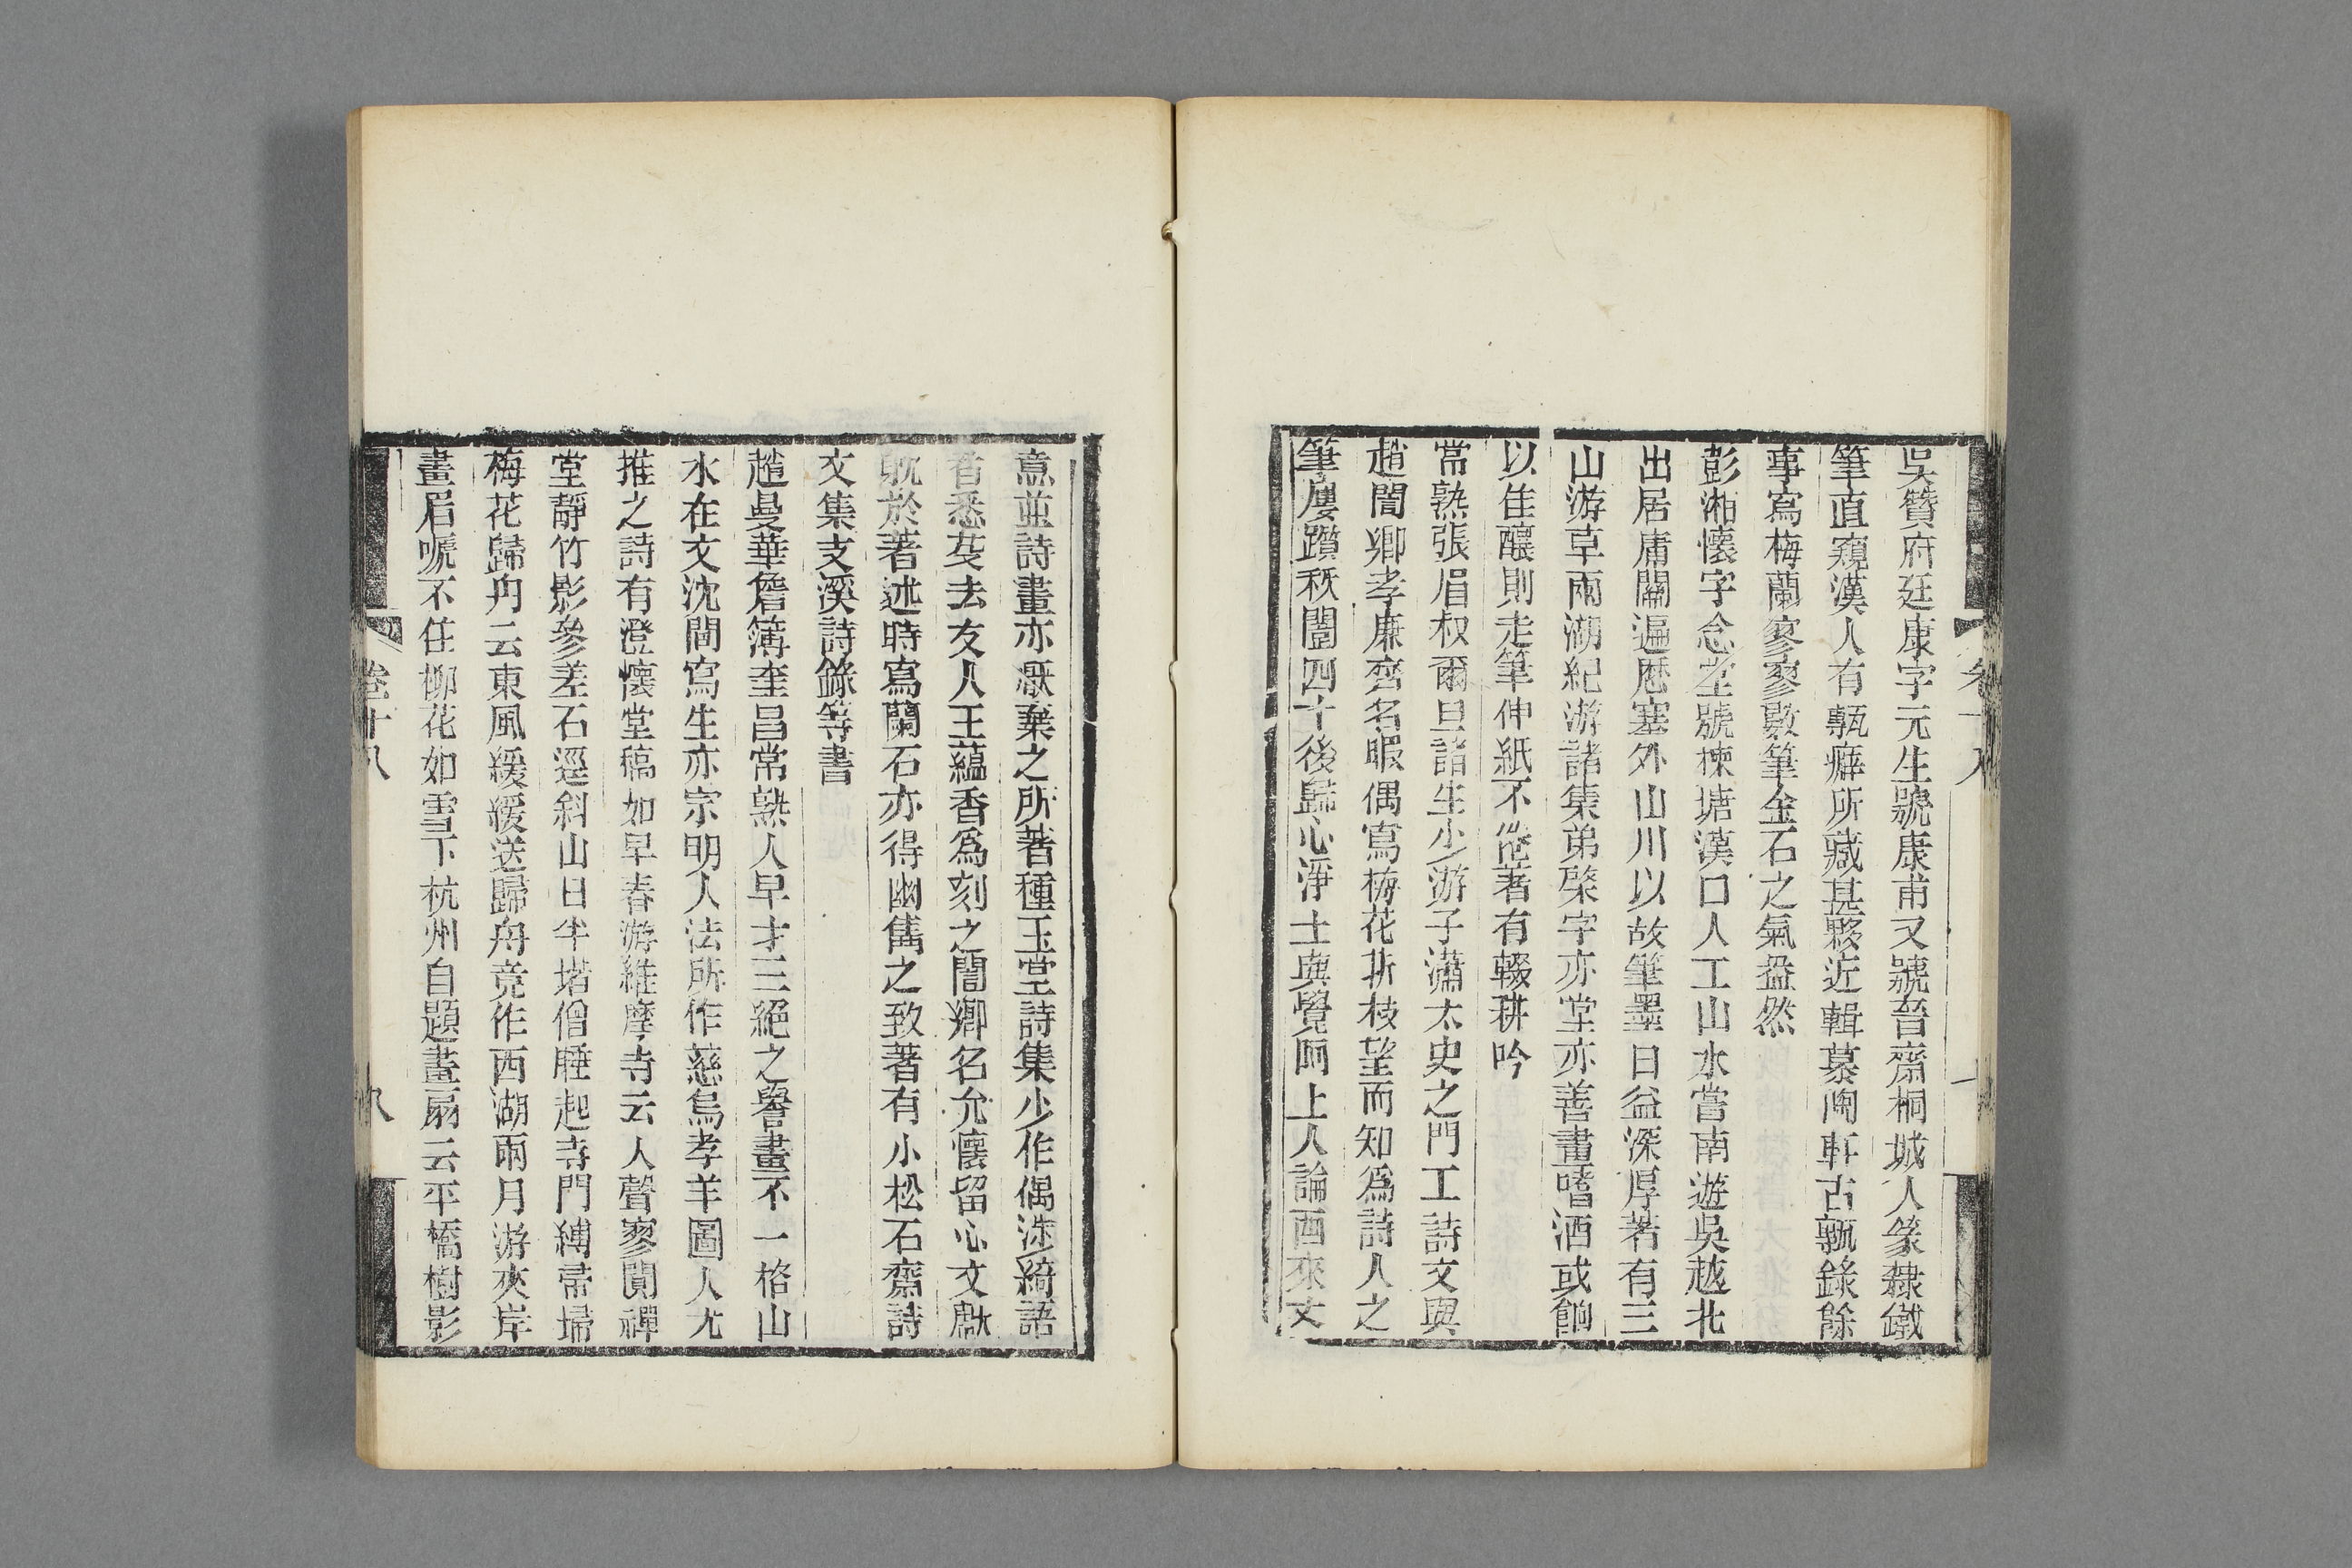 吳贊府廷康字元生號康甫又號晉齋桐城人篆隸鐵
筆直窺漢人有甎癖所藏甚夥近輯慕陶軒古甎錄餘
事寫梅蘭寥寥數筆金石之氣盎然
彭湘懷字念堂號楝塘漢口人工山水嘗南遊吳越北
出居庸關遍歷塞外山川以故筆墨日益深厚著有三
山游草兩湖紀游諸集弟棨字亦堂亦善畫嗜酒或餉
以佳釀則走筆伸紙不倦著有輟耕吟
常熟張眉叔爾旦諸生少游子瀟太史之門工詩文與
趙閶卿孝廉齊名暇偶寫梅花折枝望而知爲詩人之
筆屢躓秋闈四十後歸心淨土與覺阿上人論西來大
意並詩畫亦漸棄之所著種玉堂詩集少作偶涉綺語
者悉芟去友人王蘊香爲刻之閶卿名允懷留心文獻
耽於著述時寫蘭石亦得幽雋之致著有小松石齋詩
文集支溪詩錄等書
趙曼華詹簿奎昌常熟人早才三絕之譽畫不一格山
水在文沈間寫生亦宗明人法所作慈烏孝羊圖人尤
推之詩有澄懷堂稿如早春游維摩寺云人聲寥闃禪
堂靜竹影參差石逕斜山日半堦僧睡起寺門縛帚埽
梅花歸舟云東風緩緩送歸舟竟作西湖兩月游夾岸
畫眉嗁不住柳花如雪下杭州自題畫扇云平橋樹影
卷十八
八